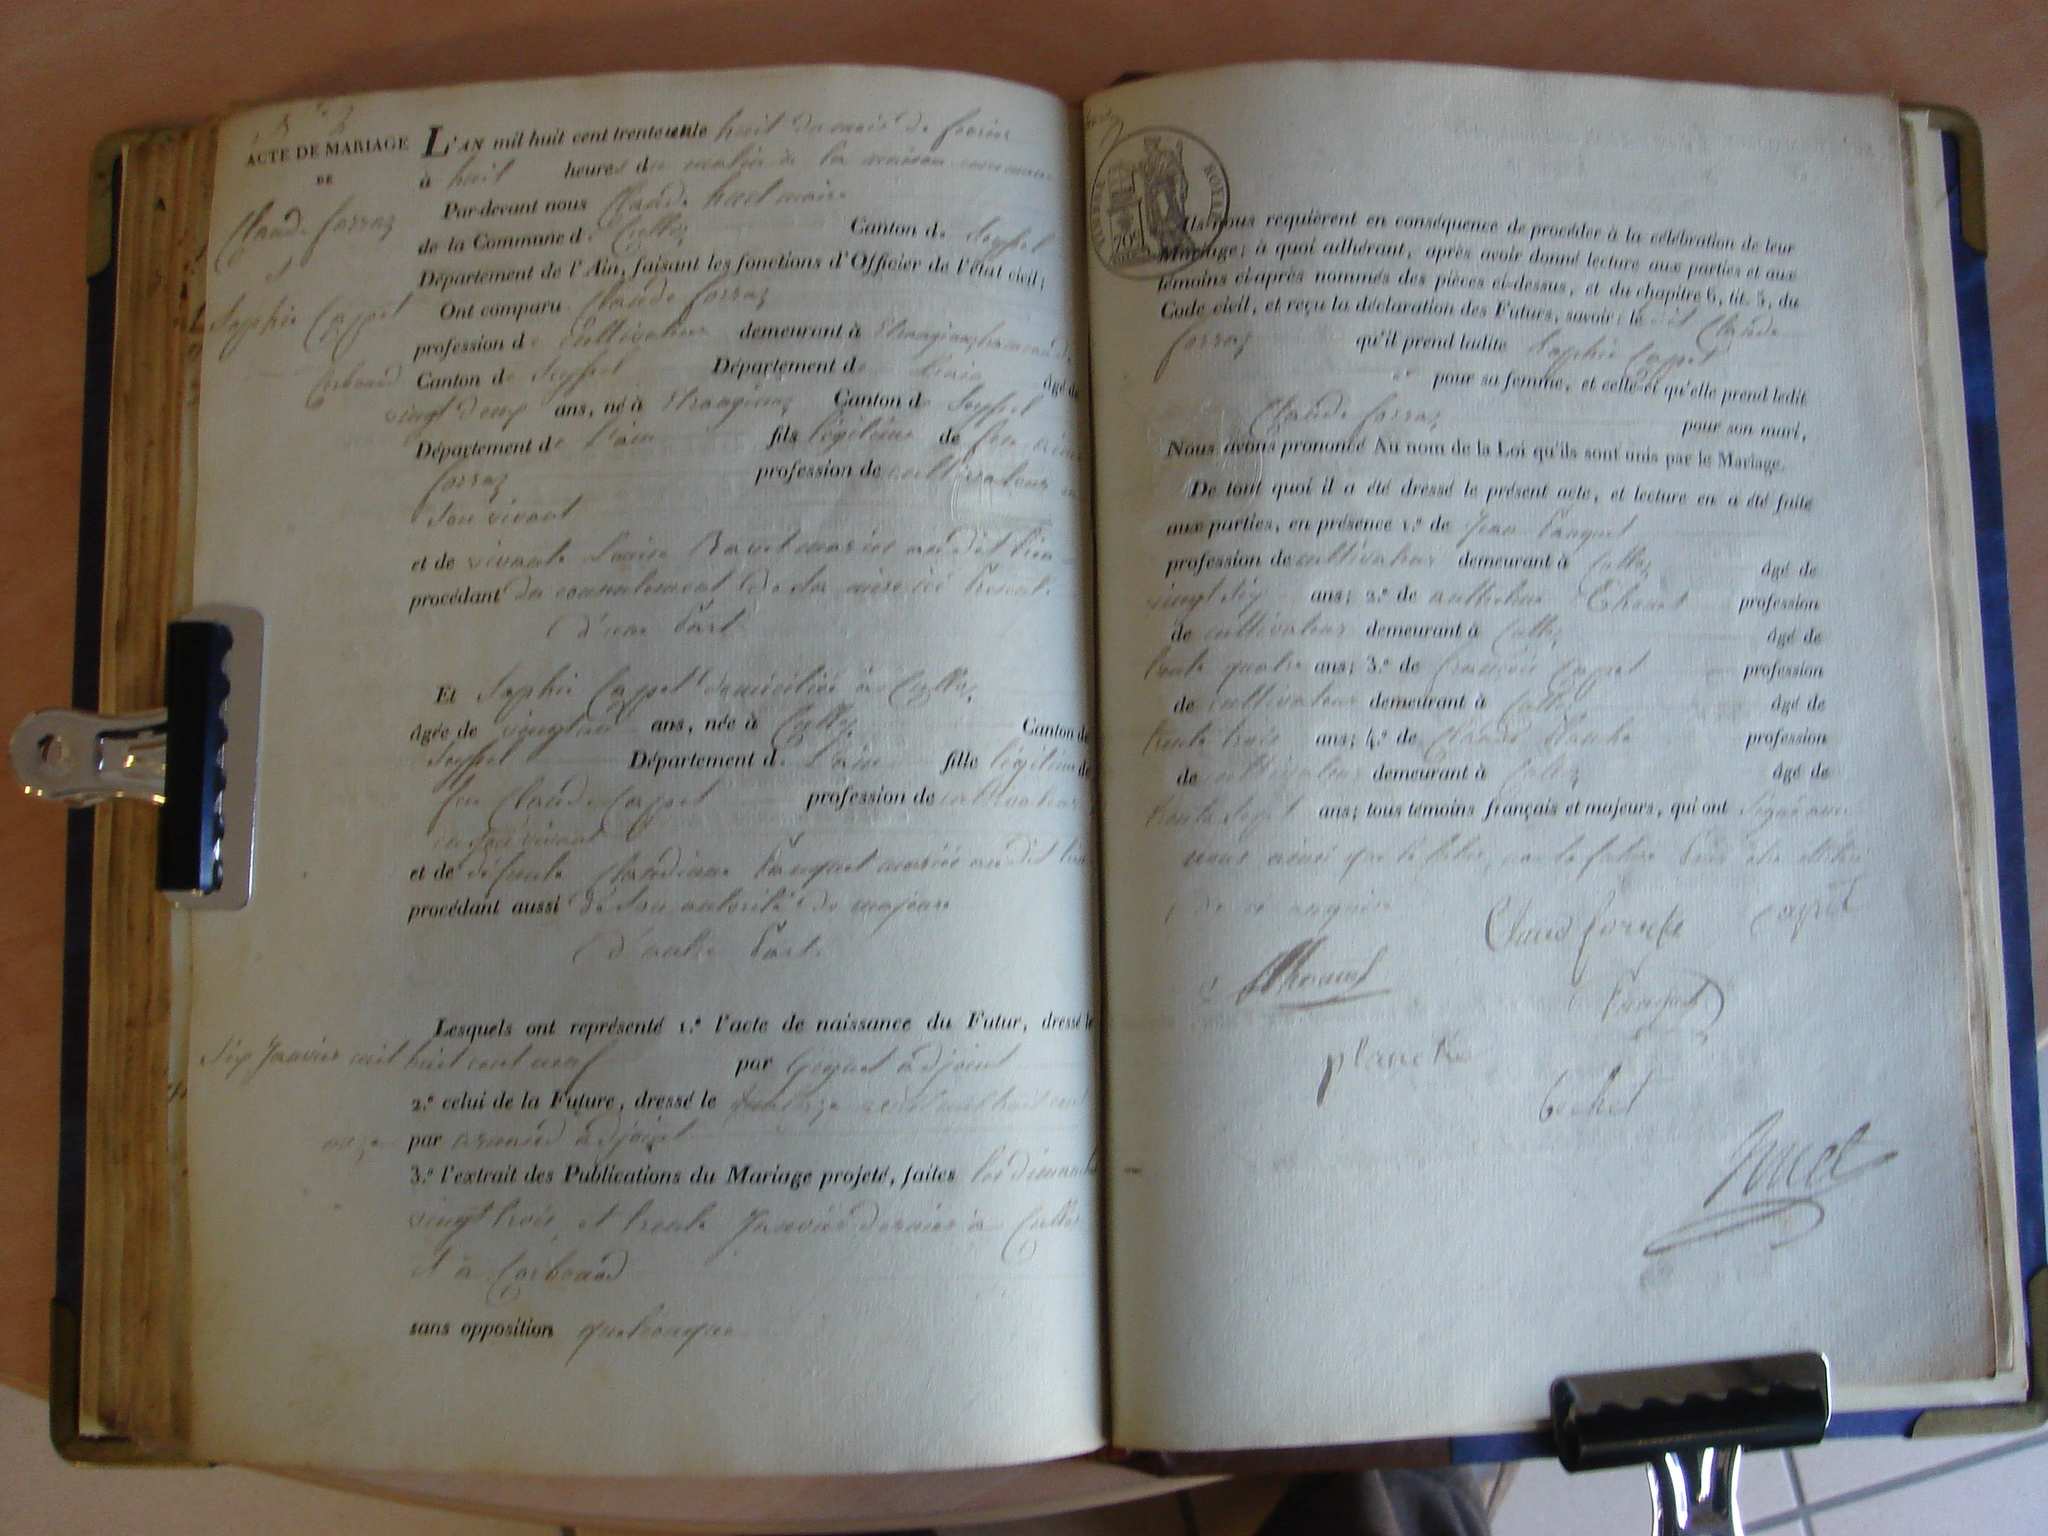 ACTE DE MARIAGE
DE
Claude Corraz
Sophie Cappet
L'AN mil huit cent trente un le huit du mois de fevrier
à huit heures du matin
Par-devant nous Claude maire
de la Commune de Culloz Canton de Seyssel
Département de l'Ain, faisant les fonctions d'Officier de l'état civil;
Ont comparu Claude Corraz
profession de Cultivateur demeurant à
Corbonod Canton de Seyssel Département de Lain âgé de
vingt deux ans, né à Etranginaz Canton de Seyssel
Département de L'ain fils légitime de feu
Corraz profession de cultivateur en
son vivant
et de vivante Louise mariés audit lieu
procédant du consentement de sa mère ici présente
d'une part
Et Sophie Cappet domiciliée à Culloz
âgée de vingt ans, née à Culloz Canton de
Seyssel Département de L'ain fille légitime de
feu Claude Cappet profession de cultivateur
en son vivant
et de défunte Claudine Fanquet mariés audit lieu
procédant aussi de son autorité de majeure
d'autre part
Lesquels ont représenté 1.º l'acte de naissance du Futur, dressé le
Six Janvier mil huit cent neuf par adjoint
2.º celui de la Future, dressé le mil huit cent
onze par adjoint
3.º l'extrait des Publications du Mariage projeté, faites les dimanches
vingt trois et trente Janvier dernier à Culloz
et à Corbonod
sans opposition quelconque
TIMBRE ROYAL
70c
Ils nous requièrent en conséquence de procéder à la célébration de leur
Mariage; à quoi adhérant, après avoir donné lecture aux parties et aux
témoins ci-après nommés des pièces ci-dessus, et du chapitre 6, tit. 5, du
Code civil, et reçu la déclaration des Futurs, savoir: le dit Claude
Corraz qu'il prend ladite Sophie Cappet
pour sa femme, et celle-ci qu'elle prend ledit
Claude Corraz pour son mari,
Nous avons prononcé Au nom de la Loi qu'ils sont unis par le Mariage.
De tout quoi il a été dressé le présent acte, et lecture en a été faite
aux parties, en présence 1.º de Jean Fanquet
profession de cultivateur demeurant à Culloz âgé de
vingt six ans; 2.º de profession
de cultivateur demeurant à Culloz âgé de
trente quatre ans; 3.º de françois Cappet profession
de cultivateur demeurant à Culloz âgé de
trente trois ans; 4.º de Claude Planche profession
de cultivateur demeurant à Culloz âgé de
trente sept ans; tous témoins français et majeurs, qui ont signé avec
nous ainsi que le futur, non la future pour être illitérée
de ce enquise
Cappet
planche